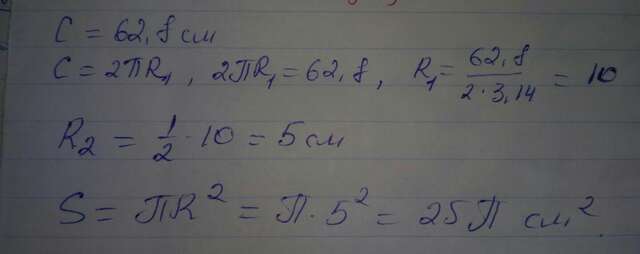 C = 62,8 см
C = 2πR₁, 2πR₁ = 62,8, R₁ = 62,8 / 2·3,14 = 10
R₂ = 1/2 · 10 = 5 см
S = πR² = π · 5² = 25π см²